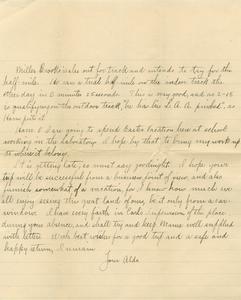 Miller Brooks is also out for track and intends to try for the
half-mile. He ran a trial half mile on the indoor track the
other day in 2 minutes 25 seconds. This is very good, and as 2-15
is qualifying on the outdoor track, "he has his S. A. A. finished", as
Ham puts it.
Ham & I are going to spend Easter Vacation here at school
working in the Laboratory. I hope by that to bring my work up
to where it belongs.
It is getting late, so must say goodnight. I hope your
trip will be successful from a business point of view and also
furnish somewhat of a vacation, for I know how much we
all enjoy seeing this great land of ours, be it only from a car
window. I have every faith in Earl's supervision of the place
during your absence, and shall try and keep Mama well supplied
with letters. With best wishes for a good trip and a safe and
happy return, I remain
Your Aldo